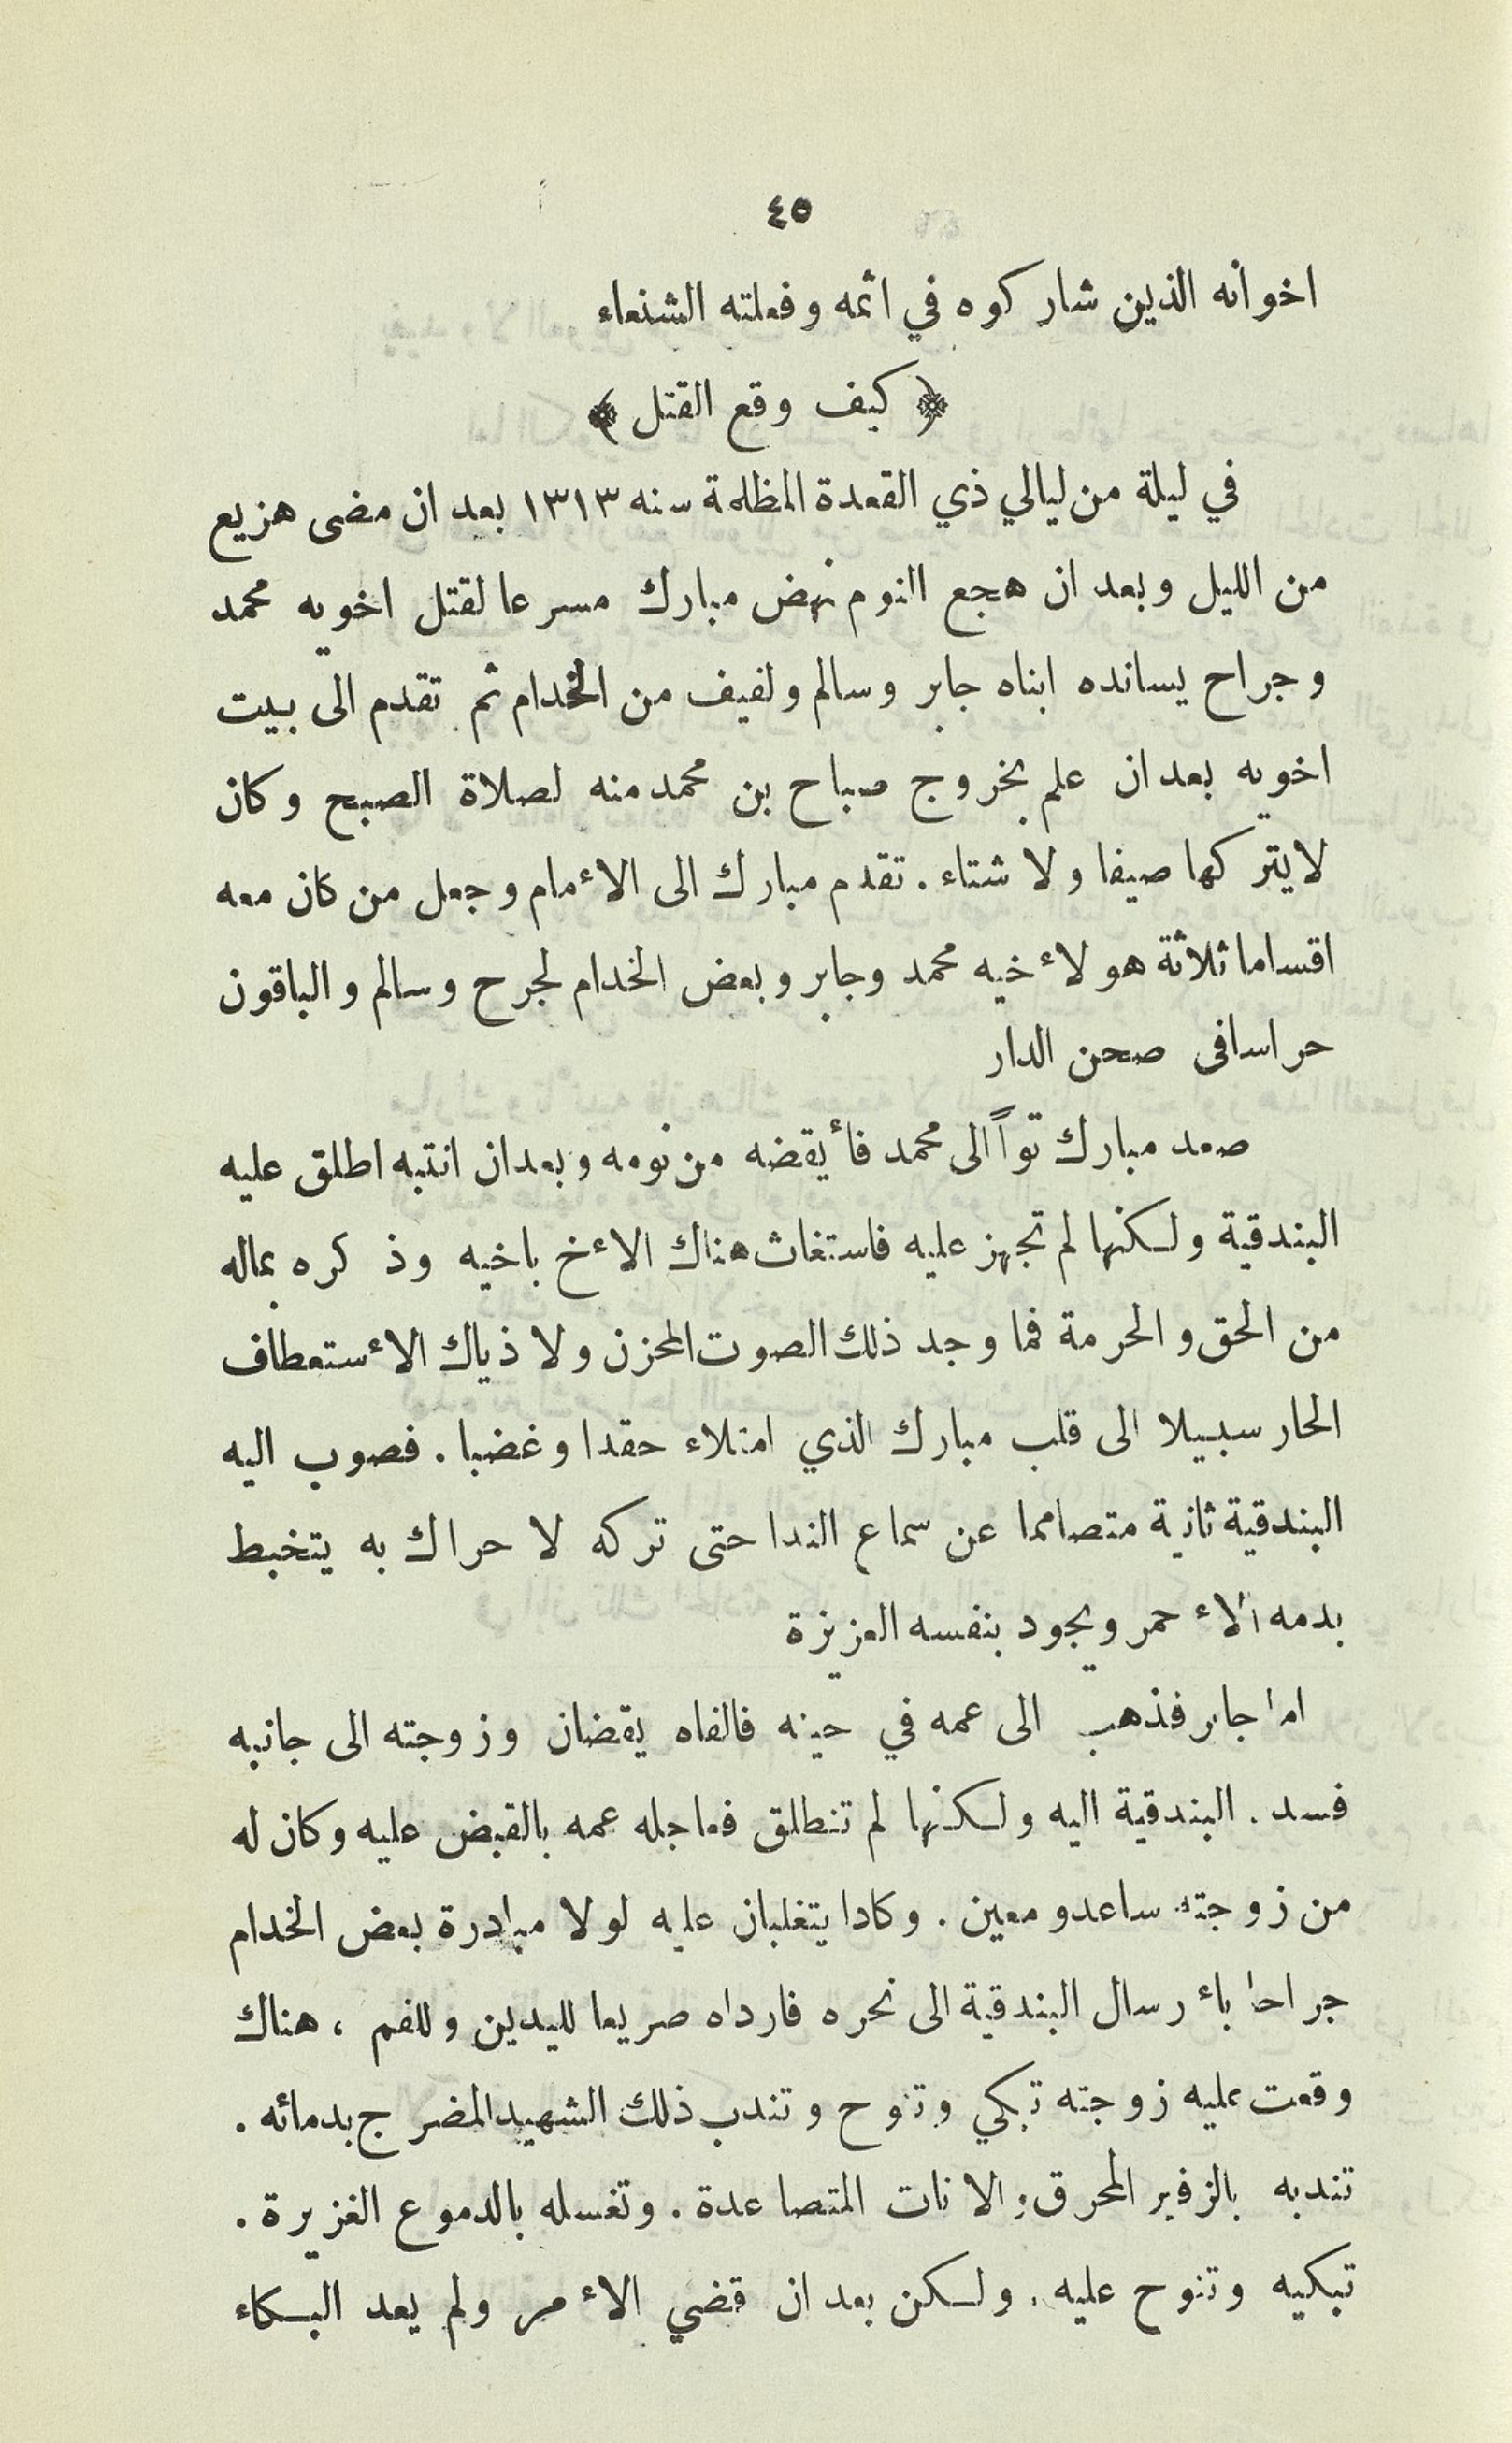 ٤٥
اخوانه الذين شاركوه في اثمه وفعلته الشنعاء
﴿ كيف وقع القتل ﴾
في ليلة من ليالي ذي القعدة المظلمة سنه ١٣١٣ بعد ان مضى هزيع
من الليل وبعد ان هجع النوم نهض مبارك مسرعا لقتل اخويه محمد
وجراح يسانده ابناه جابر وسالم ولفيف من الخدام ثم تقدم الى بيت
اخويه بعد ان علم بخروج صباح بن محمد منه لصلاة الصبح وكان
لايتركها صيفا ولا شتاء . تقدم مبارك الى الأمام وجعل من كان معه
اقساما ثلاثة هو لأخيه محمد وجابر وبعض الخدام لجرح وسالم والباقون
حراسا فى صحن الدار
صعد مبارك تواً الى محمد فأيقضه من نومه وبعد ان انتبه اطلق عليه
البندقية ولكنها لم تجهز عليه فاستغاث هناك الأخ باخيه وذكره بماله
من الحق والحرمة فما وجد ذلك الصوت المحزن ولا ذياك الأستعطاف
الحار سبيلا الى قلب مبارك الذي امتلاء حقدا وغضبا . فصوب اليه
البندقية ثانية متصامما عن سماع الندا حتى تركه لا حراك به يتخبط
بدمه الأحمر ويجود بنفسه العزيزة
اما جابر فذهب الى عمه في حينه فالفاه يقضان وزوجته الى جانبه
فسدد البندقية اليه ولكنها لم تنطلق فعاجله عمه بالقبض عليه وكان له
من زوجته ساعد ومعين . وكادا يتغلبان عليه لولا مبادرة بعض الخدام
جراحا بأرسال البندقية الى نحره فارداه صريعا لليدين وللفم ، هناك
وقعت عليه زوجته تبكي وتنوح وتندب ذلك الشهيد المضرج بدمائه .
تندبه بالزفير المحرق والانات المتصاعدة . وتغسله بالدموع الغزيرة .
تبكيه وتنوح عليه . ولكن بعد ان قضي الأمر ولم يعد البكاء